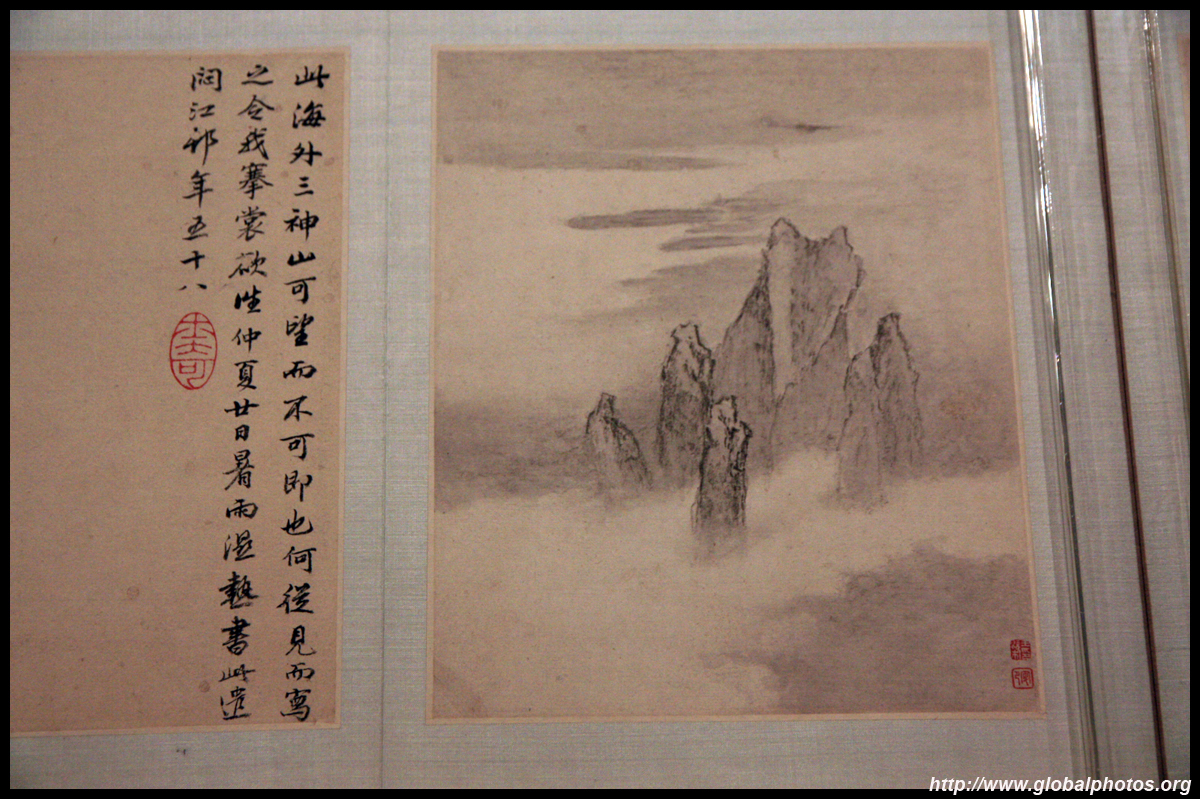 此海外三神山可望而不可即也何從見而寫
之令我搴裳欲往仲夏廿日暑雨溼熱書此遣
悶江邨年五十八
士奇
http://www.globalphotos.org